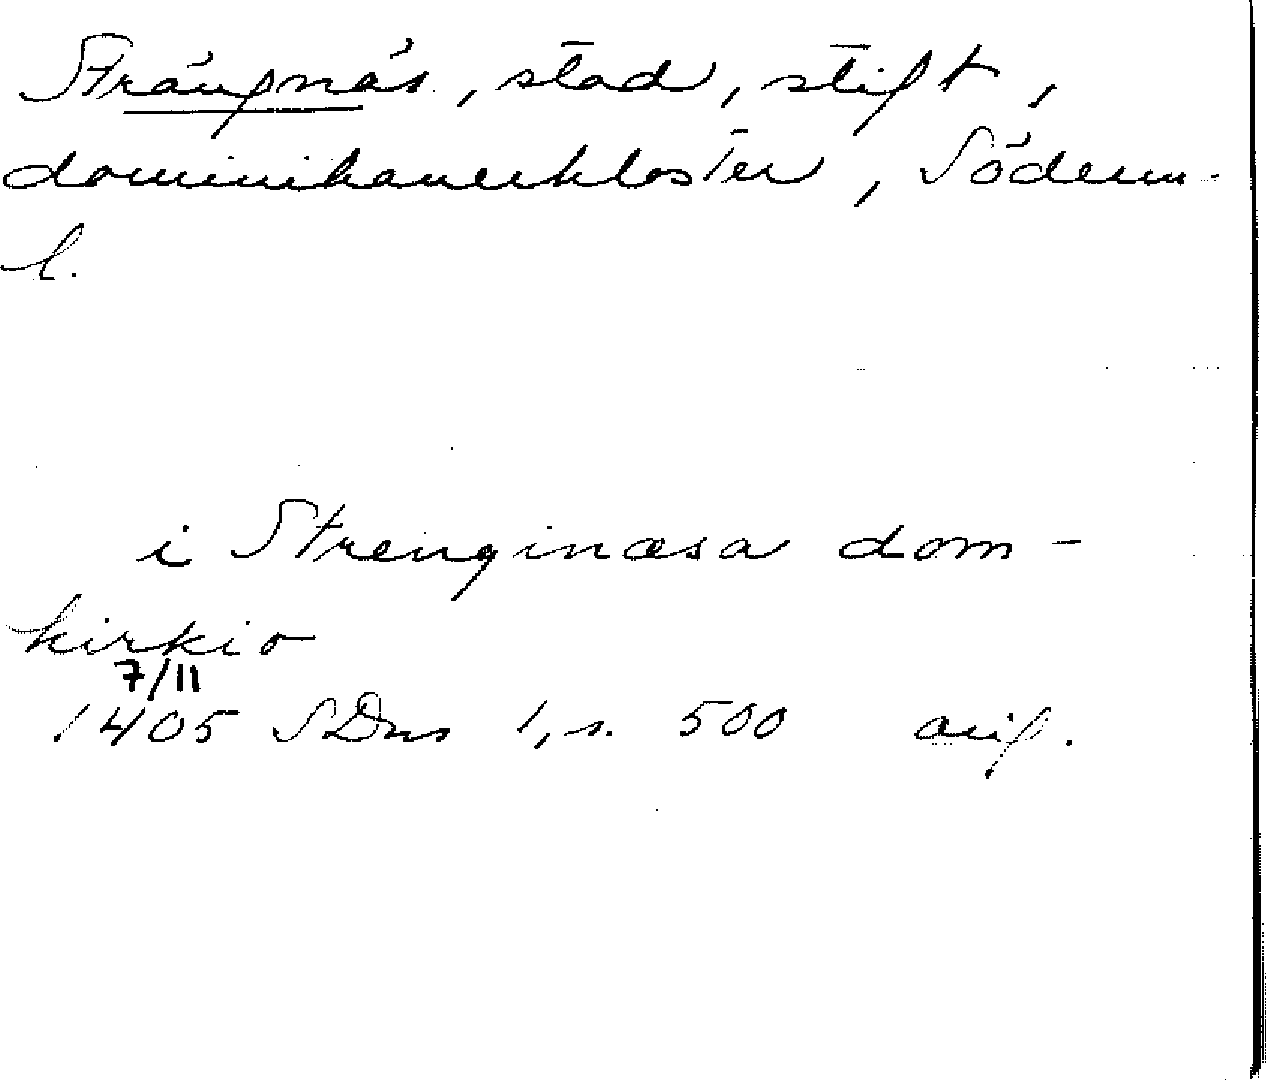 Strängnäs, stad, stift,
dominikanerkloster, Söderm-
l.
i Strenginæsa dom-
kirkio
7/11
1405 SDns 1, s. 500 orig.